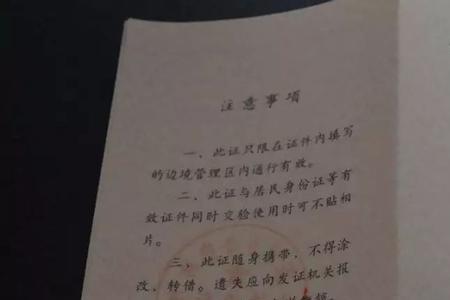 注意事项
一、此证只限在证件内填写
的边境管理区内通行有效。
二、此证与居民身份证等有
效证件同时交验使用时可不贴相
片。
三、此证随身携带，不得涂
改、转借。遗失应向发证机关报